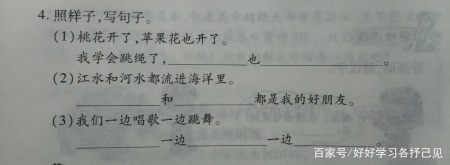 4. 照样子,写句子。
(1)桃花开了,苹果花也开了。
我学会跳绳了,________也____________。
(2)江水和河水都流进海洋里。
____________和__________都是我的好朋友。
(3)我们一边唱歌一边跳舞。
____________一边________一边________。
百家号/好好学习各抒己见